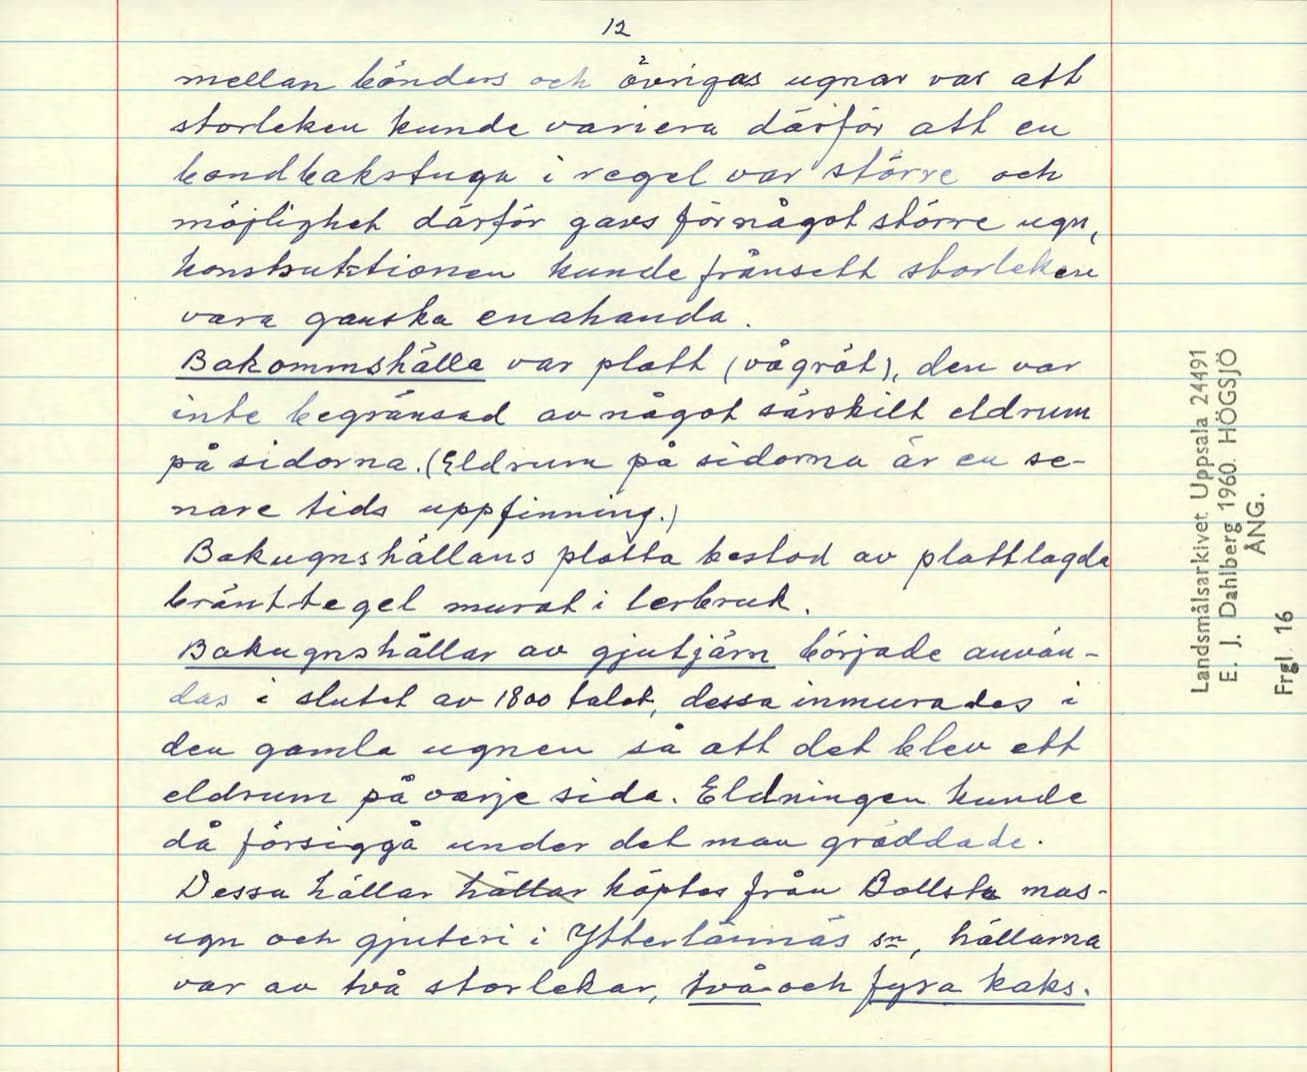 12
mellan bönders och övrigas ugnar var att
storleken kunde variera därför att en
bondbakstuga i regel var större och
möjlighet därför gavs för något större ugn,
konstruktionen kunde frånsett storleken
vara ganska enahanda.
Bakommshälla var platt (vågrät), den var
inte begränsad av något särskilt eldrum
på sidorna. (Eldrum på sidorna är en se-
nare tids uppfinning.)
Bakugnshällans platta bestod av plattlagda
bränt tegel murat i lerbruk.
Bakugnshällar av gjutjärn började använ-
das i slutet av 1800 talet, dessa inmurades i
den gamla ugnen så att det blev ett
eldrum på varje sida. Eldningen kunde
då försiggå under det man gräddade.
Dessa hällar hällar köptes från Bollsta mas-
ugn och gjuteri i Ytterlännäs sn, hällarna
var av två storlekar, två- och fyra kaks.
Landsmålsarkivet Uppsala 24491
E. J. Dahlberg 1960. HÖGSJÖ
ÅNG.
Frgl 16